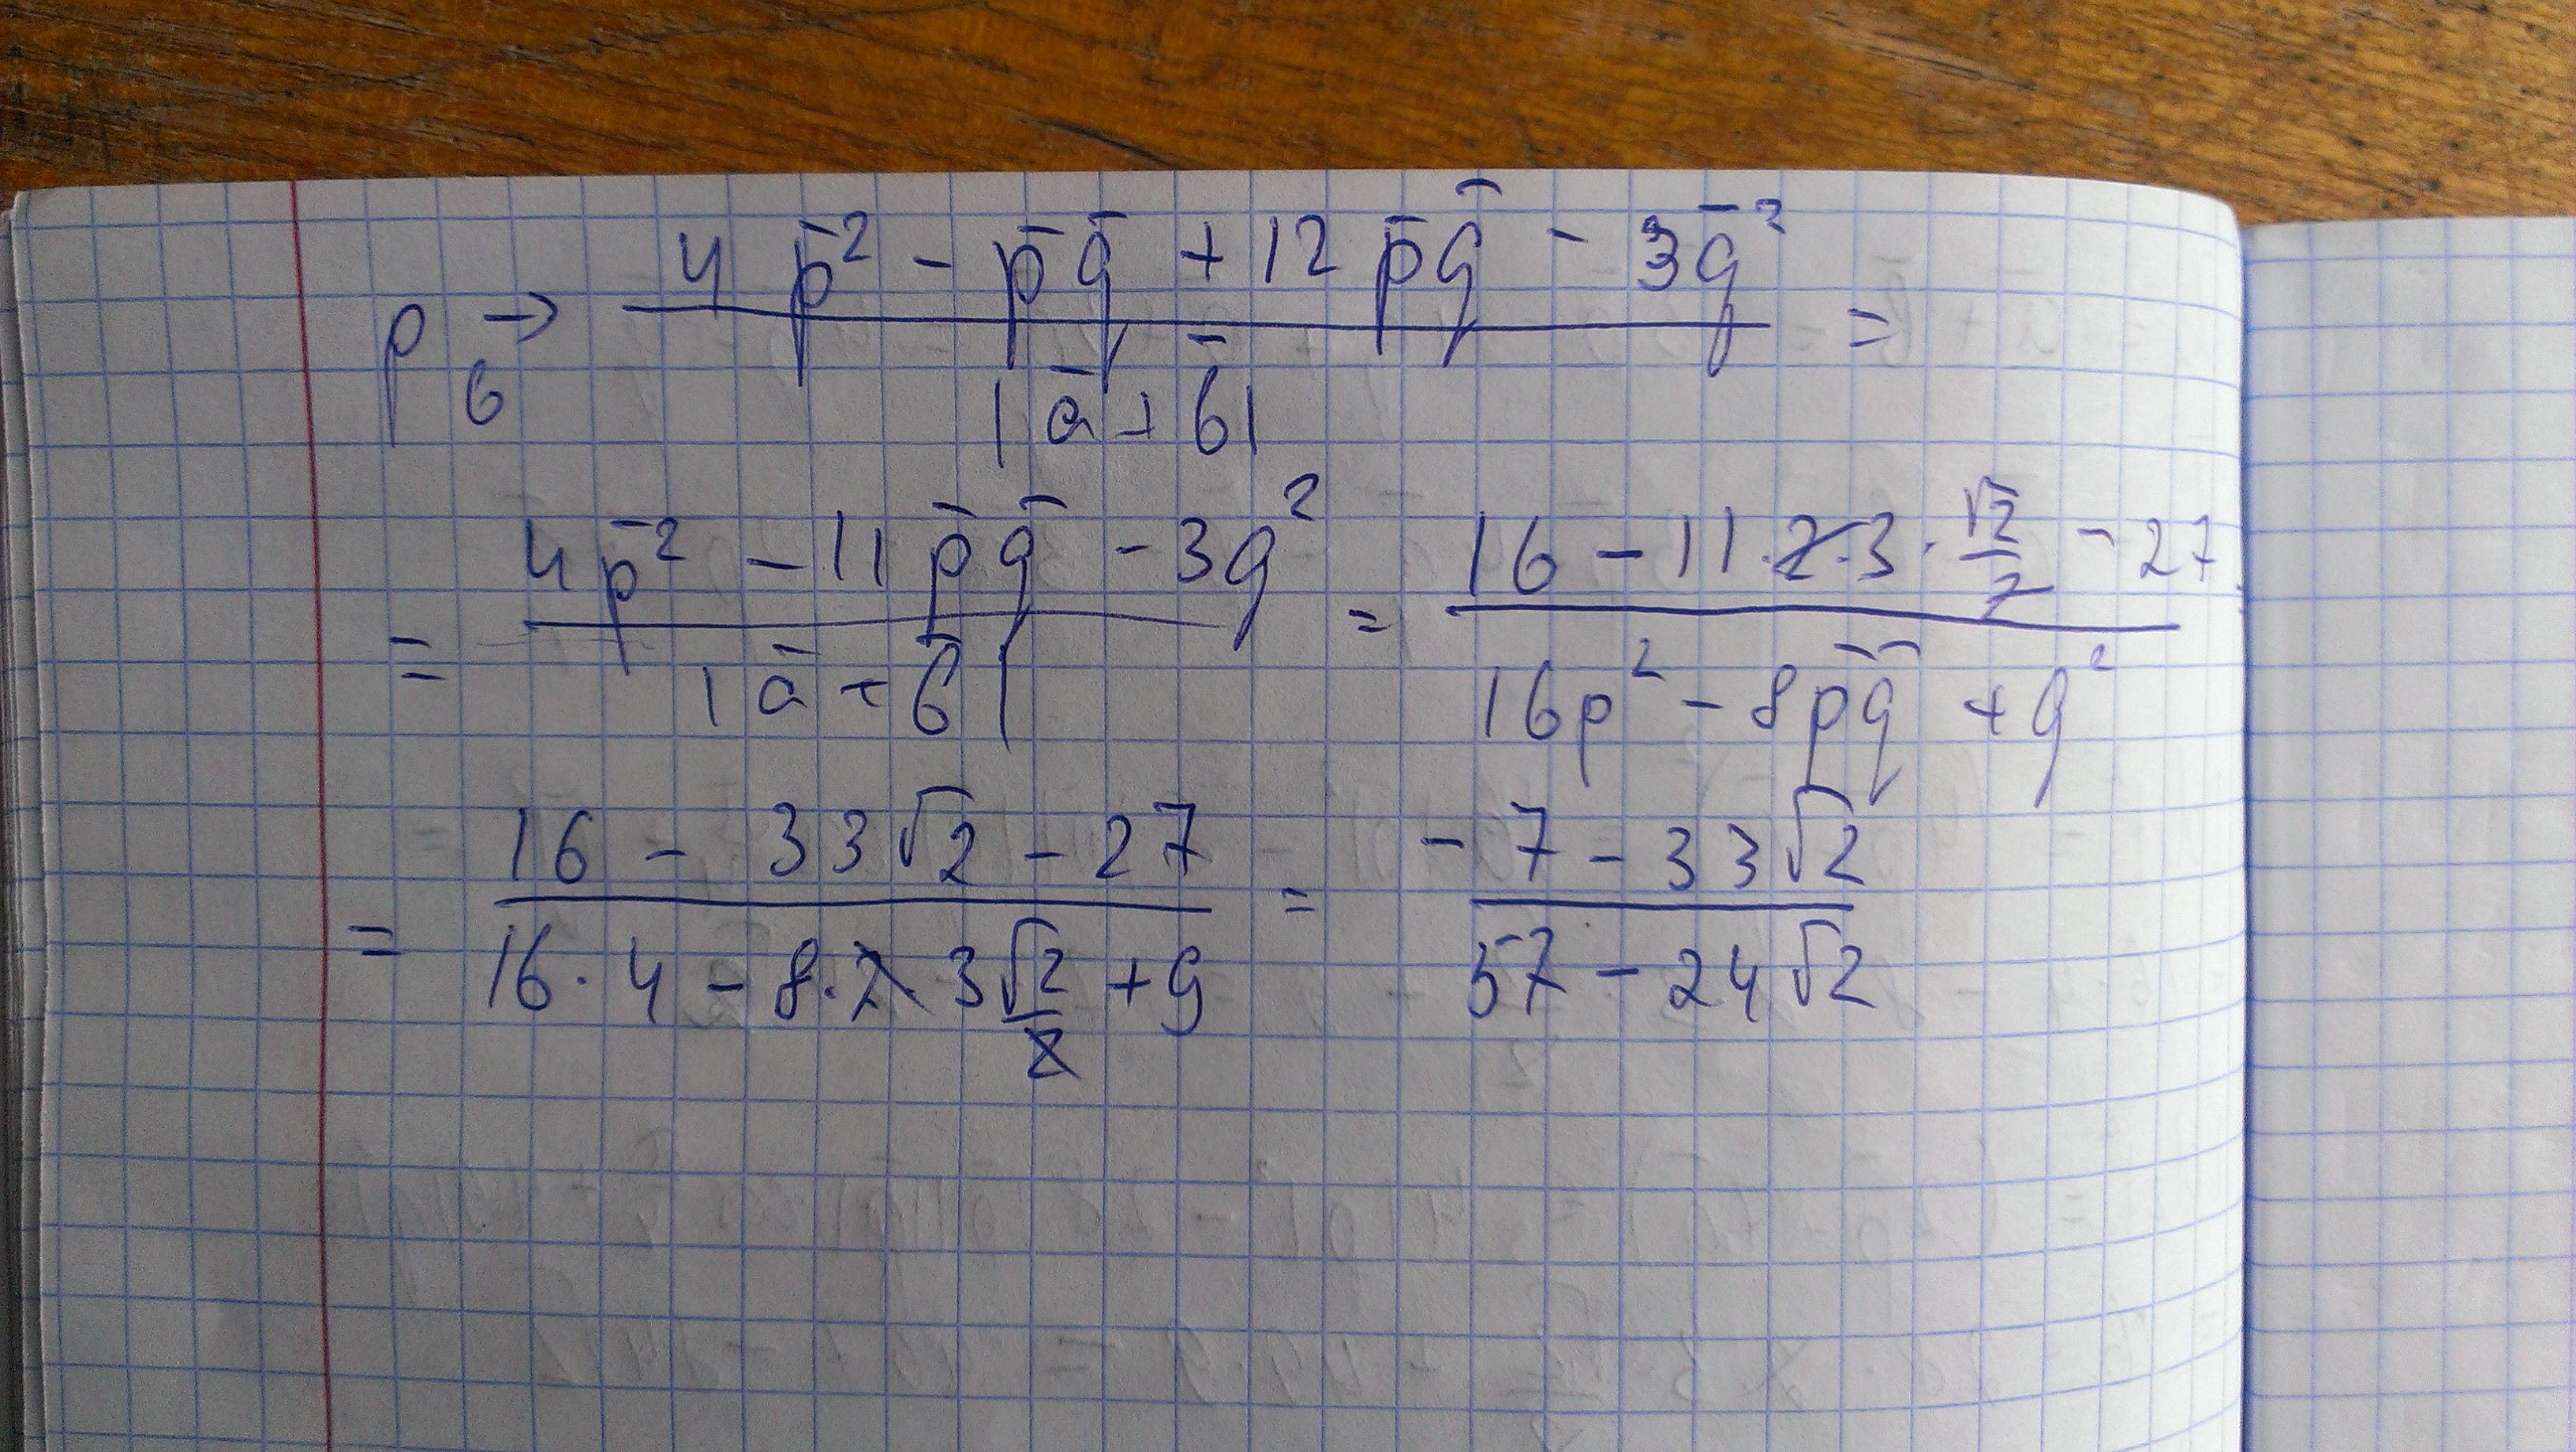 p_b → (4p̄² - p̄q̄ + 12p̄q̄ - 3q̄²) / |ā + b̄| =
= (4p̄² - 11p̄q̄ - 3q²) / |ā + b̄| = (16 - 11·2·3·√2/2 - 27) / (16p² - 8p̄q̄ + q²)
= (16 - 33√2 - 27) / (16·4 - 8·2·3√2/2 + 9) = (-7 - 33√2) / (57 - 24√2)